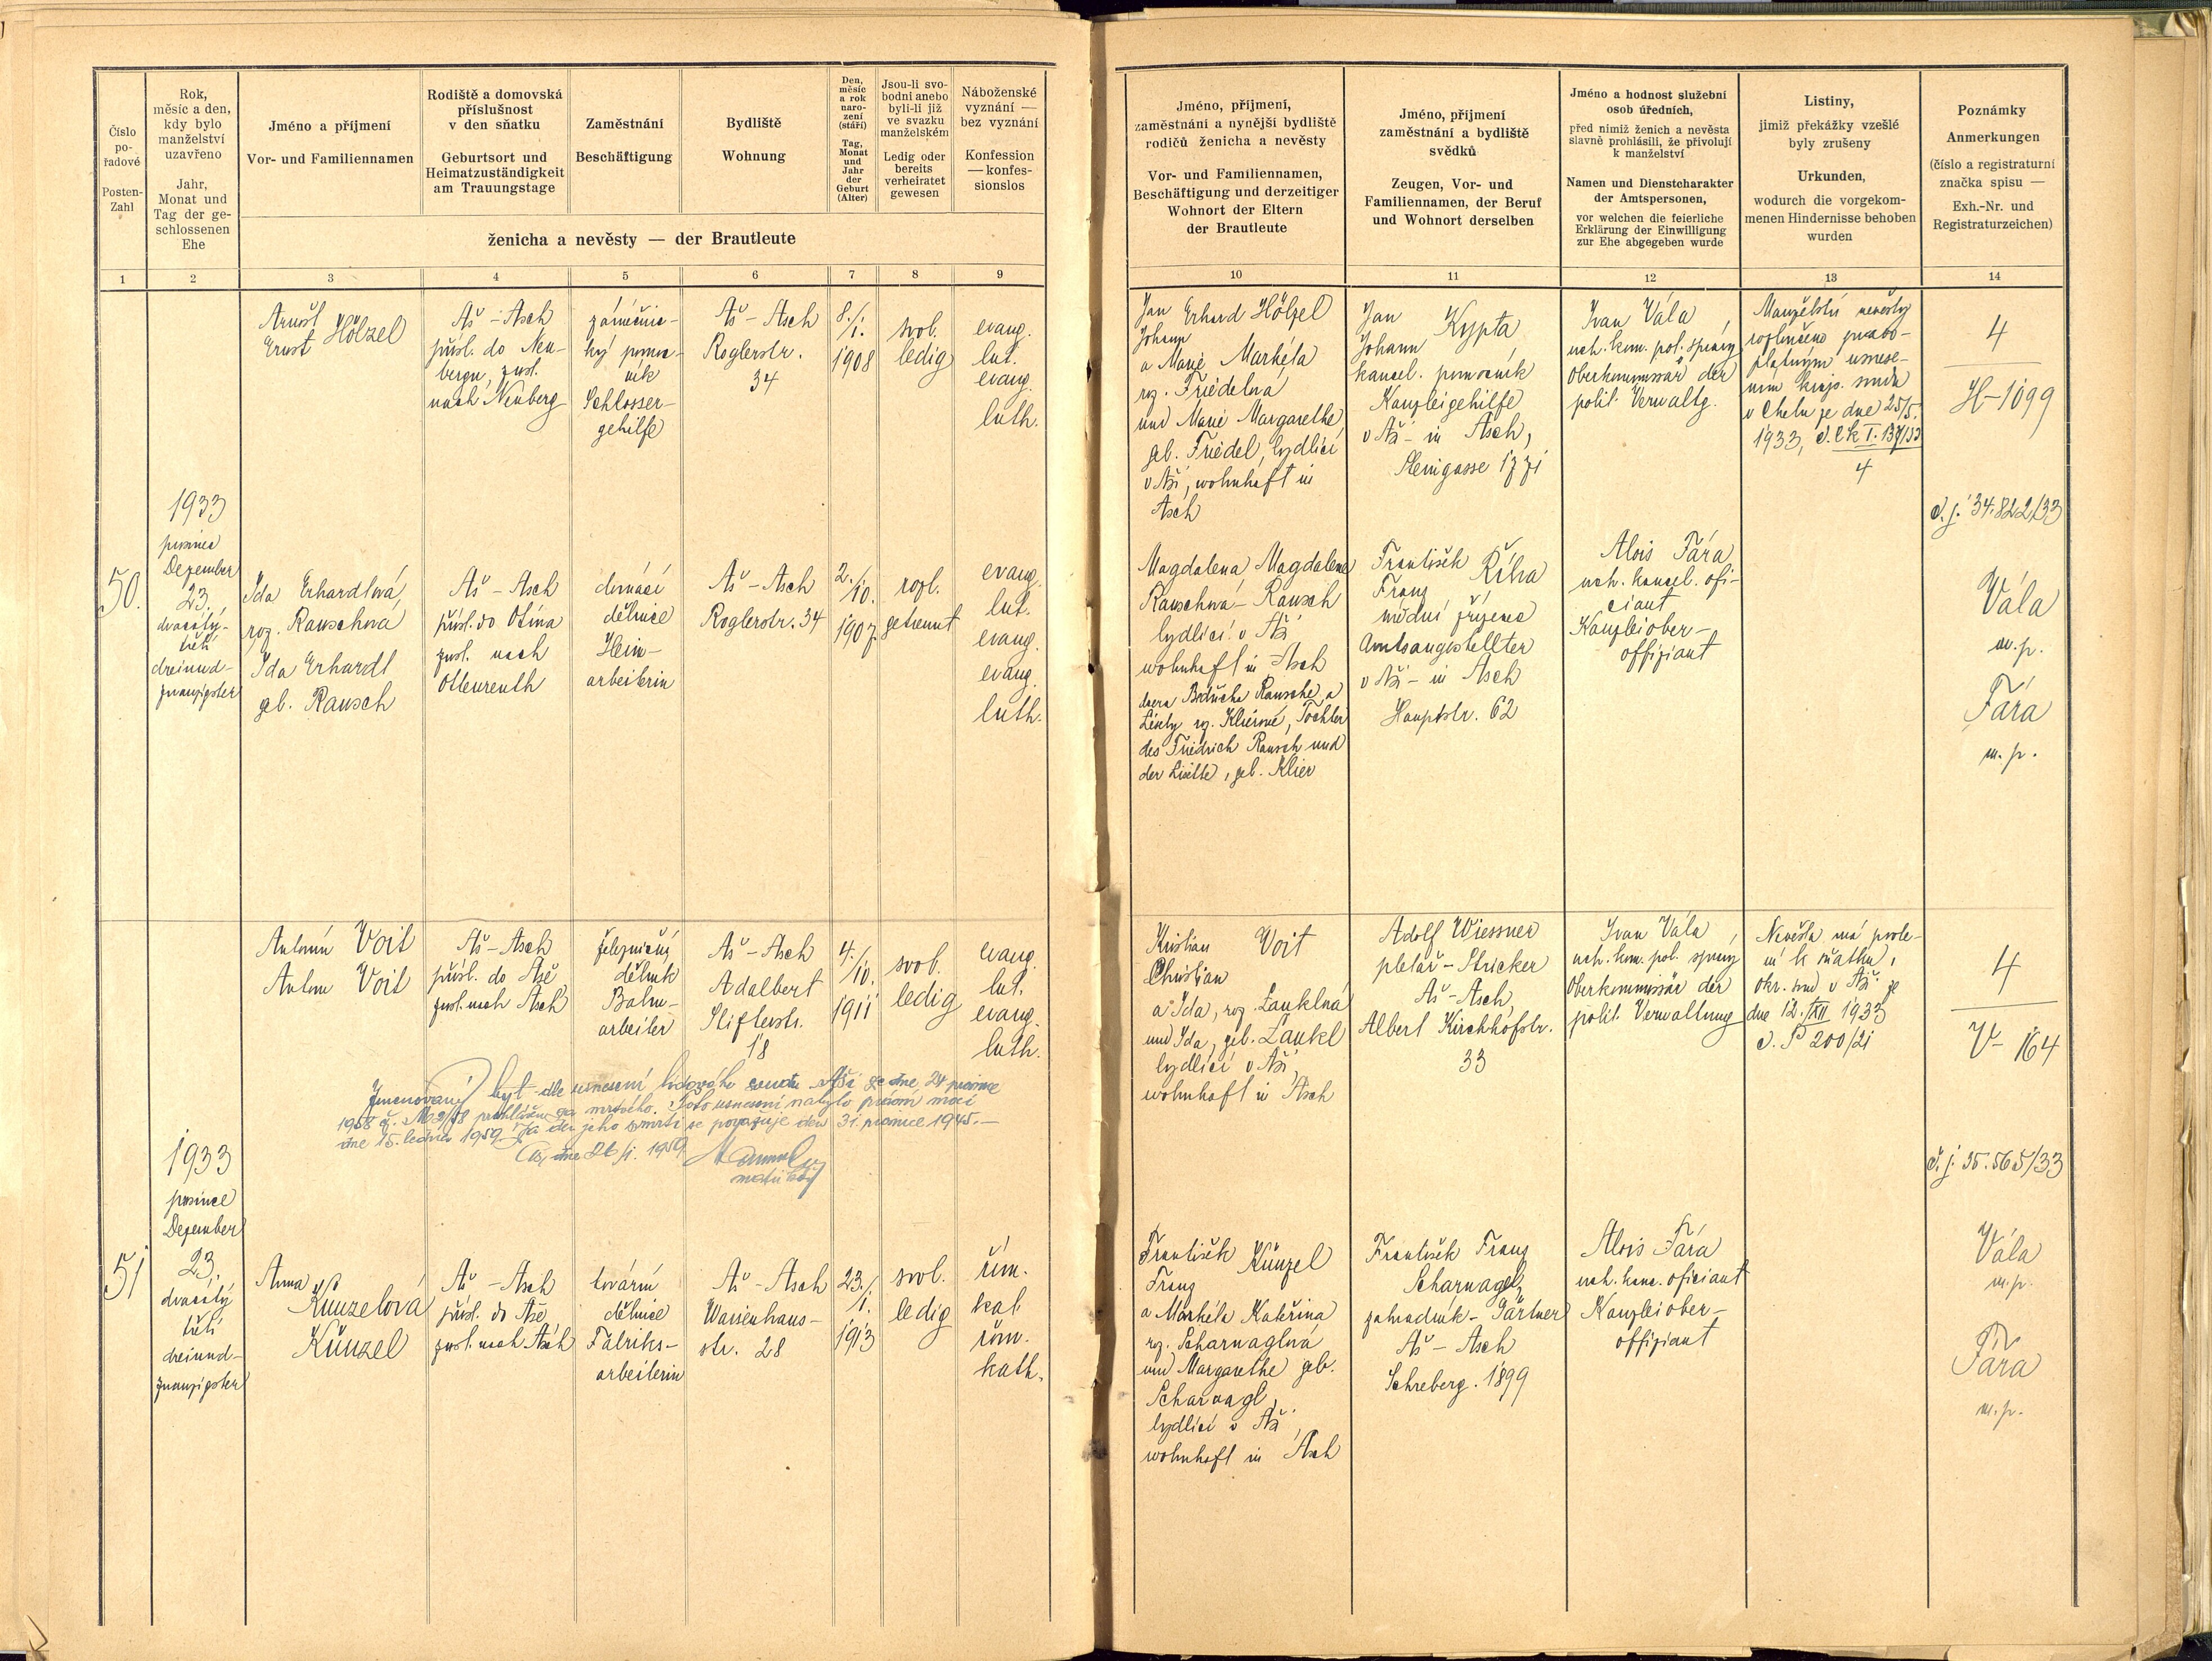 Číslo
po-
řadové
Posten-
Zahl
Rok,
měsíc a den,
kdy bylo
manželství
uzavřeno
Jahr,
Monat und
Tag der ge-
schlossenen
Ehe
Jméno a příjmení
Vor- und Familiennamen
Rodiště a domovská
příslušnost
v den sňatku
Geburtsort und
Heimatzuständigkeit
am Trauungstage
Zaměstnání
Beschäftigung
Bydliště
Wohnung
Den,
měsíc
a rok
naro-
zení
(stáří)
Tag,
Monat
und
Jahr
der
Geburt
(Alter)
Jsou-li svo-
bodni anebo
byli-li již
ve svazku
manželském
Ledig oder
bereits
verheiratet
gewesen
Náboženské
vyznání —
bez vyznání
Konfession
— konfes-
sionslos
ženicha a nevěsty — der Brautleute
1 2 3 4 5 6 7 8 9
Jméno, příjmení,
zaměstnání a nynější bydliště
rodičů ženicha a nevěsty
Vor- und Familiennamen,
Beschäftigung und derzeitiger
Wohnort der Eltern
der Brautleute
Jméno, příjmení
zaměstnání a bydliště
svědků
Zeugen, Vor- und
Familiennamen, der Beruf
und Wohnort derselben
Jméno a hodnost služební
osob úředních,
před nimiž ženich a nevěsta
slavně prohlásili, že přivolují
k manželství
Namen und Dienstcharakter
der Amtspersonen,
vor welchen die feierliche
Erklärung der Einwilligung
zur Ehe abgegeben wurde
Listiny,
jimiž překážky vzešlé
byly zrušeny
Urkunden,
wodurch die vorgekom-
menen Hindernisse behoben
wurden
Poznámky
Anmerkungen
(číslo a registraturní
značka spisu —
Exh.-Nr. und
Registraturzeichen)
10 11 12 13 14
50.
1933
prosinec
Dezember
23.
dvacátý-
třetí
dreiund-
zwanzigster
Arnošt
Ernst Hölzel
Aš - Asch
přísl. do Neu-
bergu, zust.
nach Neuberg
zámečnic-
ký pomoc-
ník
Schlosser-
gehilfe
Aš - Asch
Roglerstr.
34
8./
1.
1908
svob.
ledig
evang.
lut.
evang.
luth.
Ida Erhardtová,
roz. Rauschová
Ida Erhardt
geb. Rausch
Aš - Asch
přísl. do Otína
zust. nach
Ottenreuth
domácí
dělnice
Heim-
arbeiterin
Aš - Asch
Roglerstr. 34
2./
10.
1907.
rozl.
getrennt
evang.
lut.
evang.
evang.
luth.
Jan
Johann Erhard Hölzel
a Marie Markéta
roz. Friedelová
und Marie Margarethe,
geb. Friedel, bydlící
v Aši, wohnhaft in
Asch
Magdalena Magdalene
Rauschová - Rausch
bydlící v Aši
wohnhaft in Asch
dcera Bedřicha Rausche a
Lisety roz. Klierové, Tochter
des Friedrich Rausch und
der Lisette, geb. Klier
Jan
Johann Kypta,
kancel. pomocník
Kanzleigehilfe
v Aši - in Asch,
Steingasse 1771
František
Franz Říha
úřední zřízenec
Amtsangestellter
v Aši - in Asch
Hauptstr. 62
Ivan Vála,
vrch. kom. pol. správy
Oberkommissär der
polit. Verwaltg.
Alois Fára
vrch. kancel. ofi-
ciant
Kanzleiober-
offiziant
Manželství nevěsty
rozloučeno pravo-
platným usnese-
ním krajs. soudu
v Chebu ze dne 25/5.
1933, č. Ck I. 137/33
4
4
H-1099
č. j. 34.822/33
Vála
m. p.
Fára
m. p.
51
1933
prosinec
Dezember
23.
dvacátý
třetí
dreiund-
zwanzigster
Antonín Voit
Anton Voit
Aš - Asch
přísl. do Aše
zust. nach Asch
železniční
dělník
Bahn-
arbeiter
Aš - Asch
Adalbert
Stifterstr.
18
4./
10.
1911
svob.
ledig
evang.
lut.
evang.
luth.
Jmenovaný byl dle usnesení lidového soudu v Aši ze dne 24 prosince
1958 prohlášen za mrtvého. Toto usnesení nabylo právní moci
dne 15. ledna 1959. Za den jeho smrti se považuje den 31. prosince 1945. —
Aš, dne 26/1. 1959
matrikář
Anna Künzelová
Künzel
Aš - Asch
přísl. do Aše
zust. nach Asch
tovární
dělnice
Fabriks-
arbeiterin
Aš - Asch
Waisenhaus-
str. 28
23./
1.
1913
svob.
ledig
řím.
kat.
röm.
kath.
Kristian
Christian Voit
a Ida, roz. Lauklová
und Ida, geb. Laukl
bydlící v Aši,
wohnhaft in Asch
František
Franz Künzel
a Markéta Kateřina
roz. Scharnaglová
und Margarethe geb.
Scharnagl,
bydlící v Aši,
wohnhaft in Asch
Adolf Wiessner
pletař - Stricker
Aš - Asch,
Albert Kirchhofstr.
33
František Franz
Scharnagel,
zahradník - Gärtner
Aš - Asch
Schreberg. 1899
Ivan Vála,
vrch. kom. pol. správy
Oberkommissär der
polit. Verwaltung
Alois Fára
vrch. kanc. oficiant
Kanzleiober-
offiziant
Nevěsta má povole-
ní k sňatku,
okr. soud v Aši ze
dne 12./XII 1933
č. P 200/21
4
V-164
č. j. 35.565/33
Vála
m. p.
Fára
m. p.